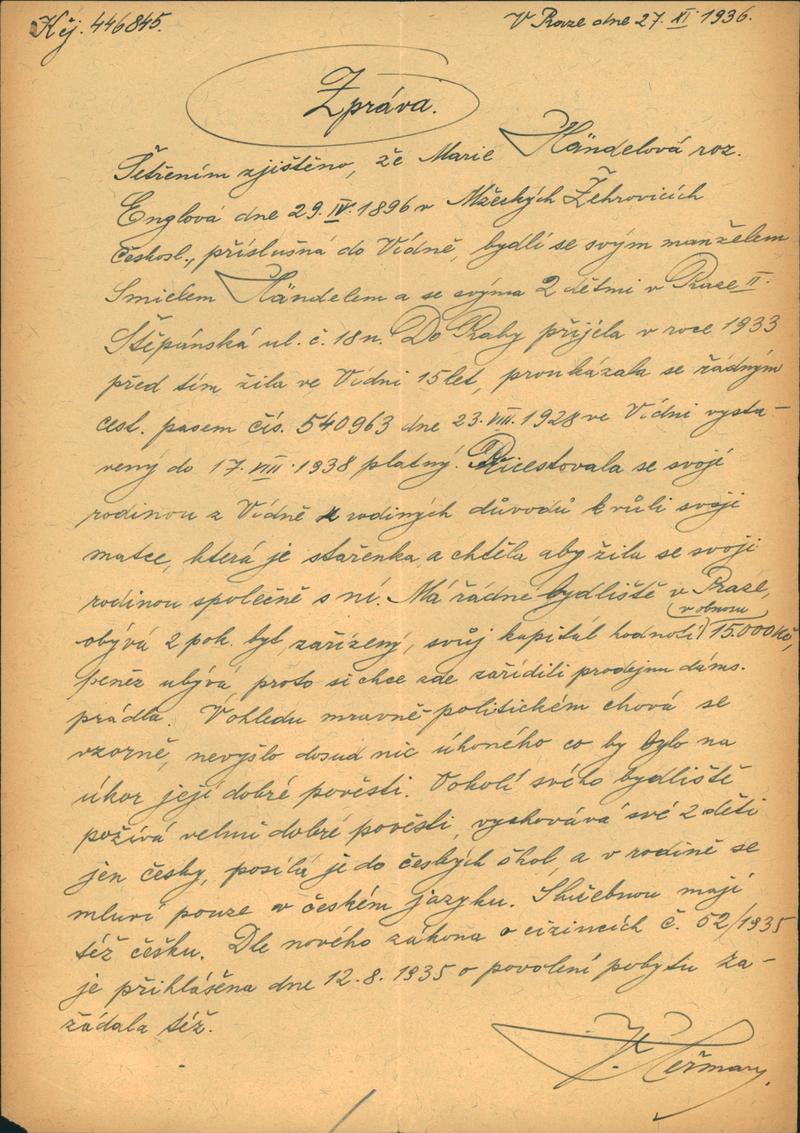 K čj. 446845.
V Praze dne 27. XI 1936.
Zpráva.
Šetřením zjištěno, že Marie Händelová roz.
Englová dne 29. IV. 1896 v Mšeckých Žehrovicích
českosl., příslušná do Vídně, bydlí se svým manželem
Smielem Händelem a se svýma 2 dětmi v Praze II.
Štěpánská ul. č. 18 n. Do Prahy přijela v roce 1933
před tím žila ve Vídni 15 let, proukázala se řádným
cest. pasem čís. 540963 dne 23. VIII. 1928 ve Vídni vysta-
vený do 17. VIII. 1938 platný. Přicestovala se svojí
rodinou z Vídně z rodiných důvodů kvůli svoji
matce, která je stařenka, a chtěla aby žila se svoji
rodinou společně s ní. Má řádné bydliště v Praze,
obývá 2 pok. byt, zařízený, svůj kapitál hodnotí (v obnosu) 15.000 Kč,
peněz ubývá proto si chce zde zařídili prodejnu dáms.
prádla. Vohledu mravně-politickém chová se
vzorně, nevyšlo dosud nic úhoného co by bylo na
úkor její dobré pověsti. Vokolí svého bydliště
požívá velmi dobré pověsti, vychovává své 2 děti
jen česky, posílá je do českých škol, a v rodině se
mluví pouze v českém jazyku. Služebnou mají
též češku. Dle nového zákona o cizincích č. 52/1935
je přihlášena dne 12. 8. 1935 o povolení pobytu za-
žádala též.